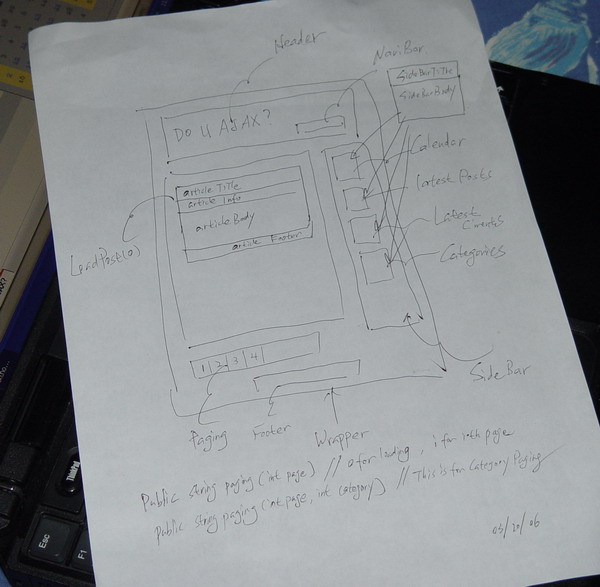 Header
NaviBar
Do U AJAX?
SideBarTitle
SideBarBody
Calendar
Latest Posts
Latest
Categories
article Title
article Info
article Body
article Footer
LoadPost(0)
SideBar
1 2 3 4
Paging
Footer
Wrapper
Public string paging (int page) // 0 for loading, i for ith page
Public string paging (int page, int category) // This is for Category Paging
03/20/06
ThinkPad
Esc
F1